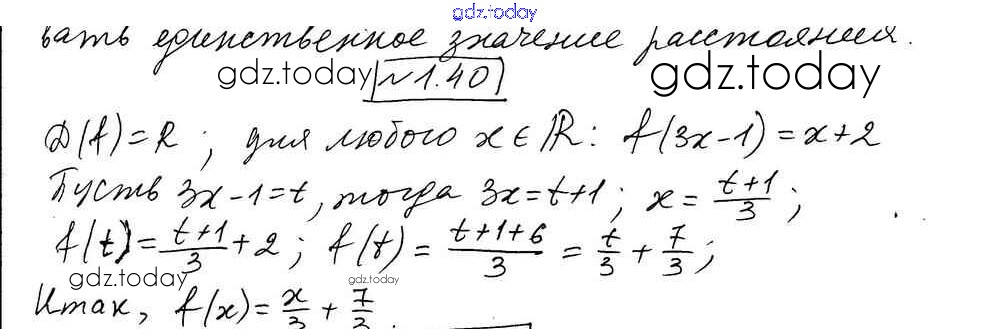 gdz.today
вать единственное значение расстояния.
gdz.today №1.40 gdz.today
D(f)=R; для любого x∈R: f(3x-1)=x+2
Пусть 3x-1=t, тогда 3x=t+1; x=\frac{t+1}{3};
f(t)=\frac{t+1}{3}+2; f(t)=\frac{t+1+6}{3}=\frac{t}{3}+\frac{7}{3};
gdz.today gdz.today
Итак, f(x)=\frac{x}{3}+\frac{7}{3}.